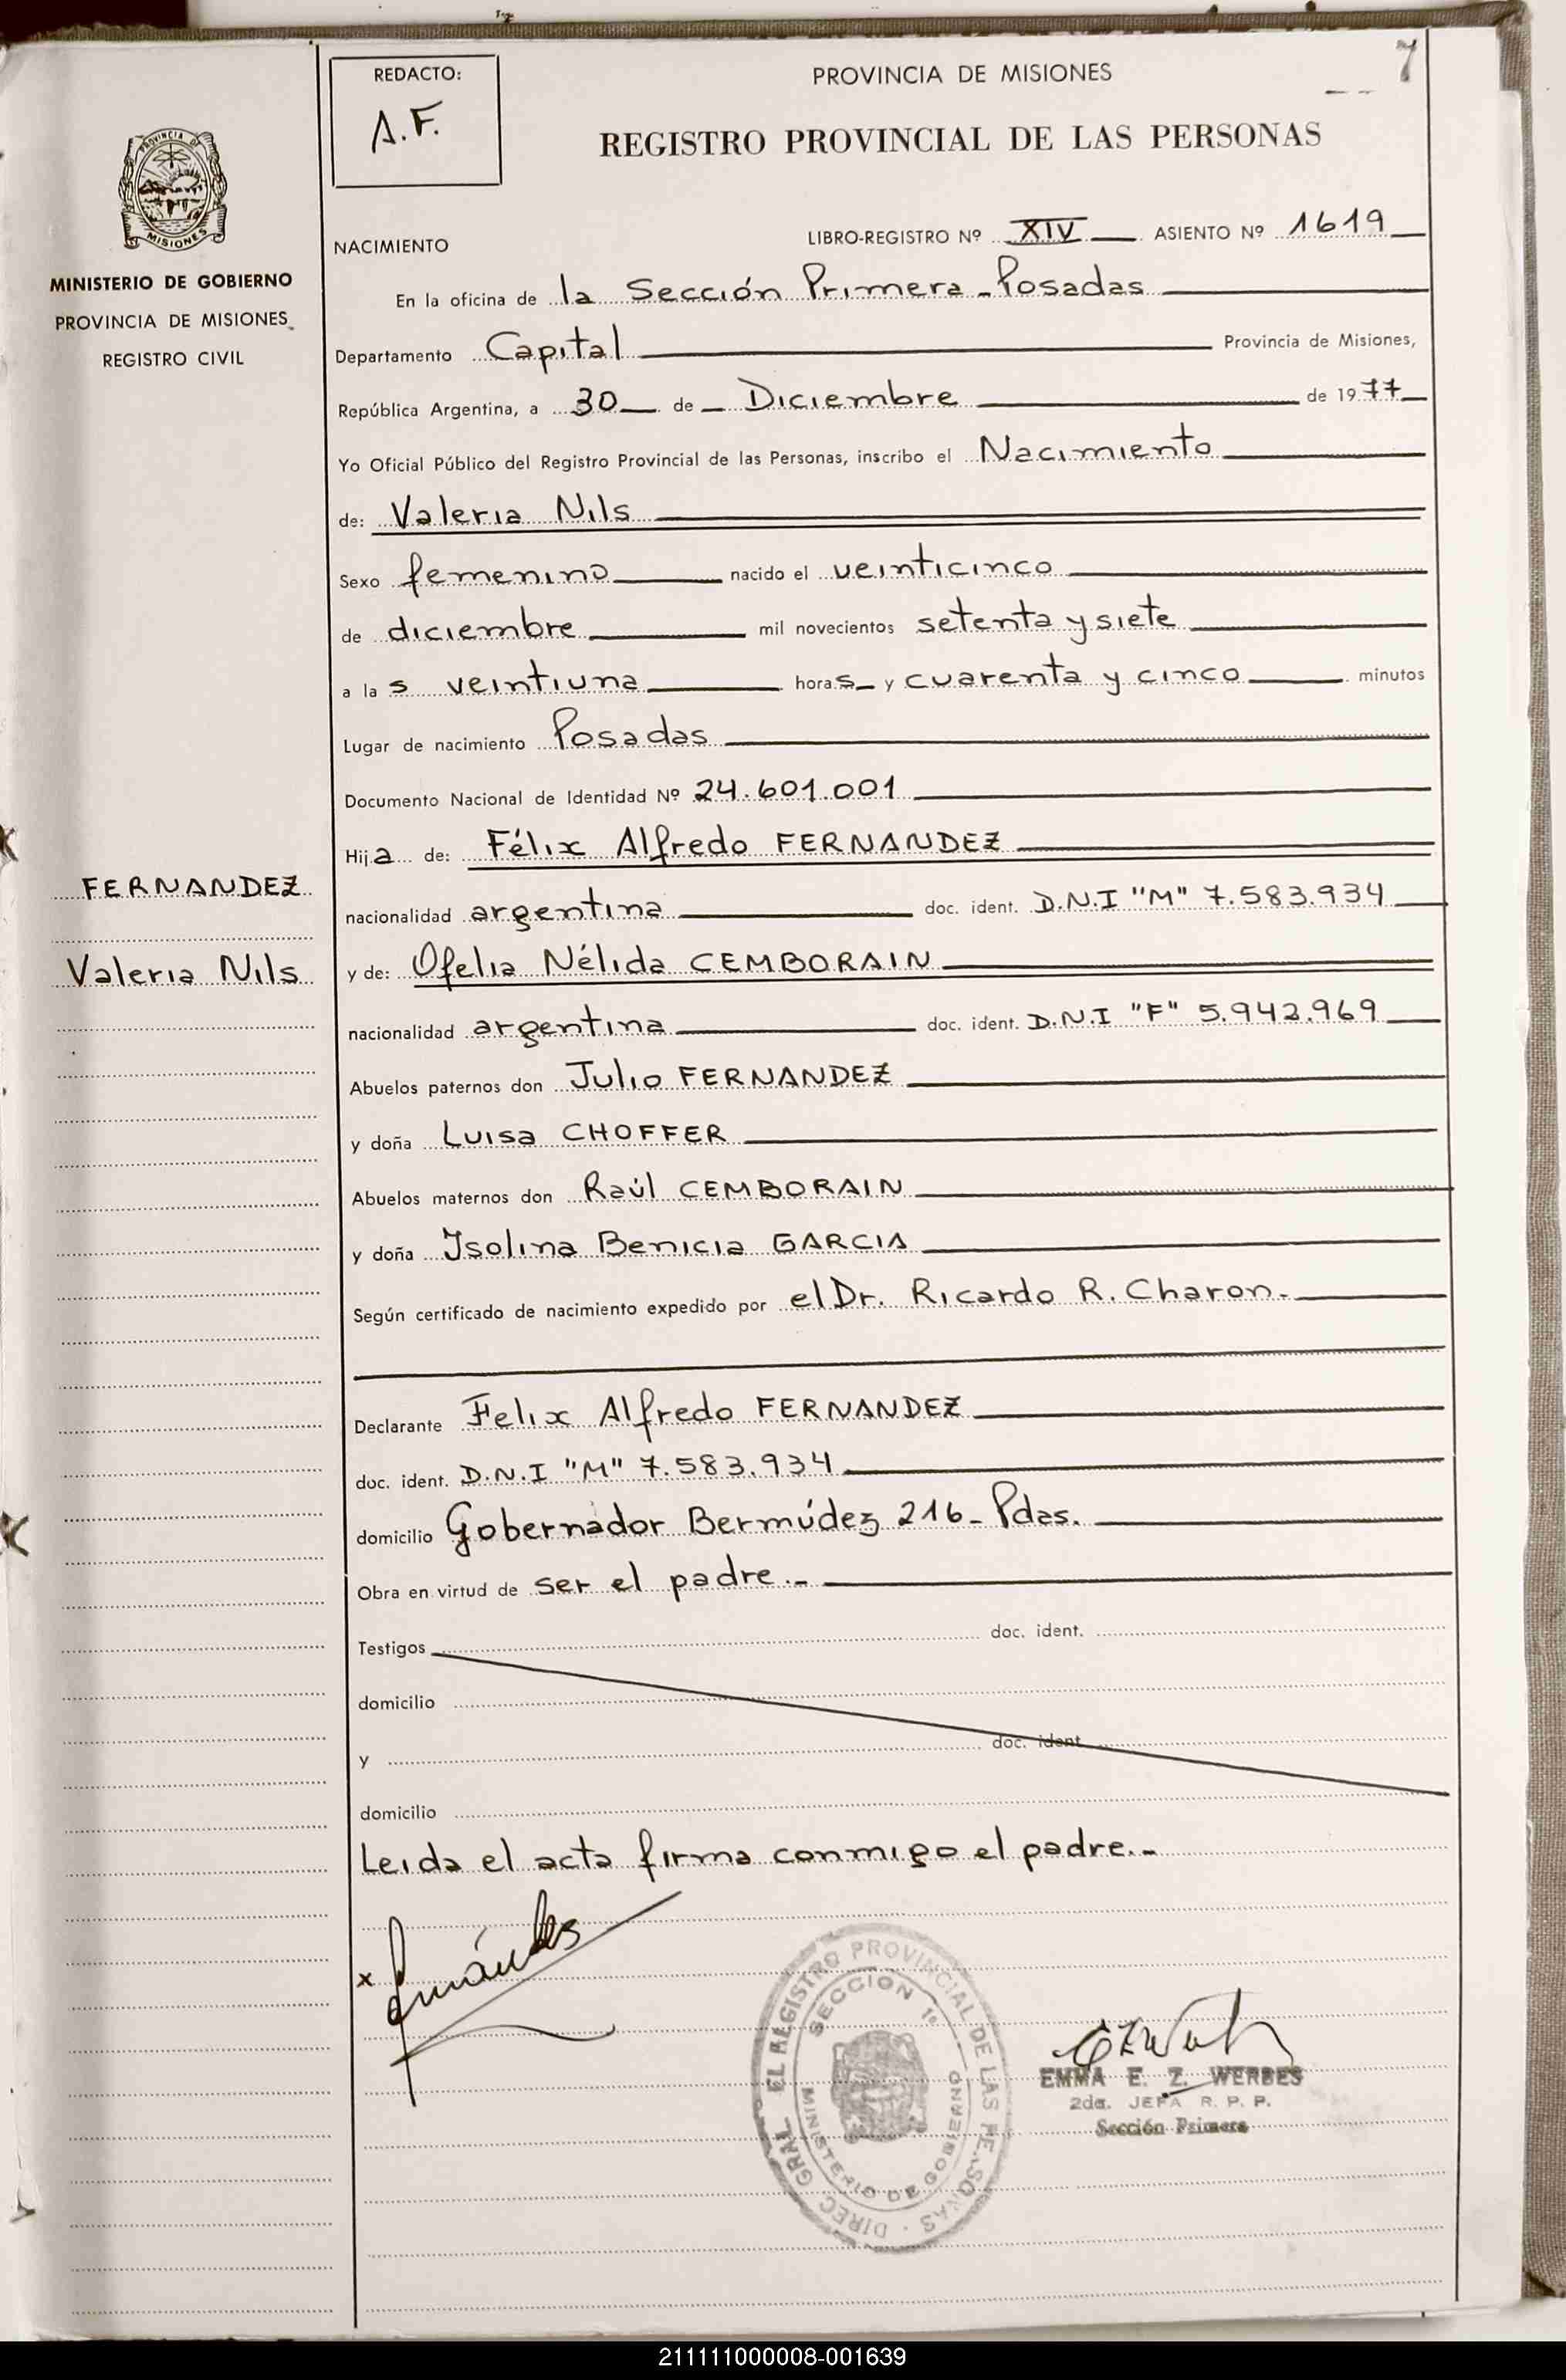 REDACTO:
A.F.
PROVINCIA DE MISIONES
7
REGISTRO PROVINCIAL DE LAS PERSONAS
PROVINCIA DE
MISIONES
MINISTERIO DE GOBIERNO
PROVINCIA DE MISIONES
REGISTRO CIVIL
NACIMIENTO
LIBRO-REGISTRO Nº XIV ASIENTO Nº 1619
En la oficina de la Sección Primera - Posadas
Departamento Capital Provincia de Misiones,
República Argentina, a 30 de Diciembre de 1977
Yo Oficial Público del Registro Provincial de las Personas, inscribo el Nacimiento
de: Valeria Nils
Sexo femenino nacido el veinticinco
de diciembre mil novecientos setenta y siete
a las veintiuna horas y cuarenta y cinco minutos
Lugar de nacimiento Posadas
Documento Nacional de Identidad Nº 24.601.001
Hija de: Félix Alfredo FERNANDEZ
FERNANDEZ
nacionalidad argentina doc. ident. D.N.I "M" 7.583.934
Valeria Nils
y de: Ofelia Nélida CEMBORAIN
nacionalidad argentina doc. ident. D.N.I "F" 5.942.969
Abuelos paternos don Julio FERNANDEZ
y doña Luisa CHOFFER
Abuelos maternos don Raúl CEMBORAIN
y doña Isolina Benicia GARCIA
Según certificado de nacimiento expedido por el Dr. Ricardo R. Charon.
Declarante Felix Alfredo FERNANDEZ
doc. ident. D.N.I "M" 7.583.934
domicilio Gobernador Bermúdez 216- Pdas.
Obra en virtud de ser el padre.-
Testigos doc. ident.
domicilio
y doc. ident.
domicilio
Leida el acta firma conmigo el padre.-
x Fernández
DIREC. GRAL. EL REGISTRO PROVINCIAL DE LAS PERSONAS
SECCION 1ª
MINISTERIO DE GOBIERNO
EMMA E. Z. WERBES
2da. JEFA R. P. P.
Sección Primera
211111000008-001639